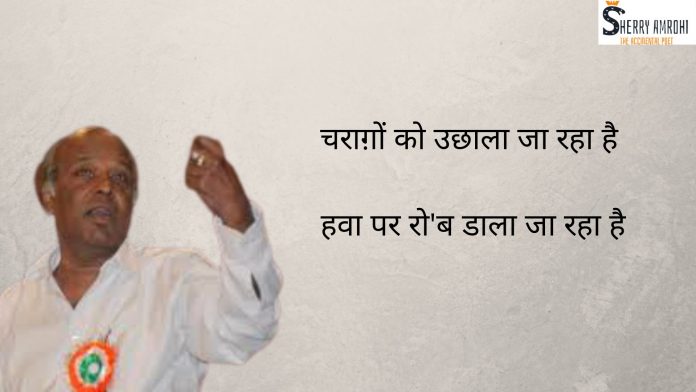 SHERRY AMROHI
THE ACCIDENTAL POET
चराग़ों को उछाला जा रहा है
हवा पर रो'ब डाला जा रहा है